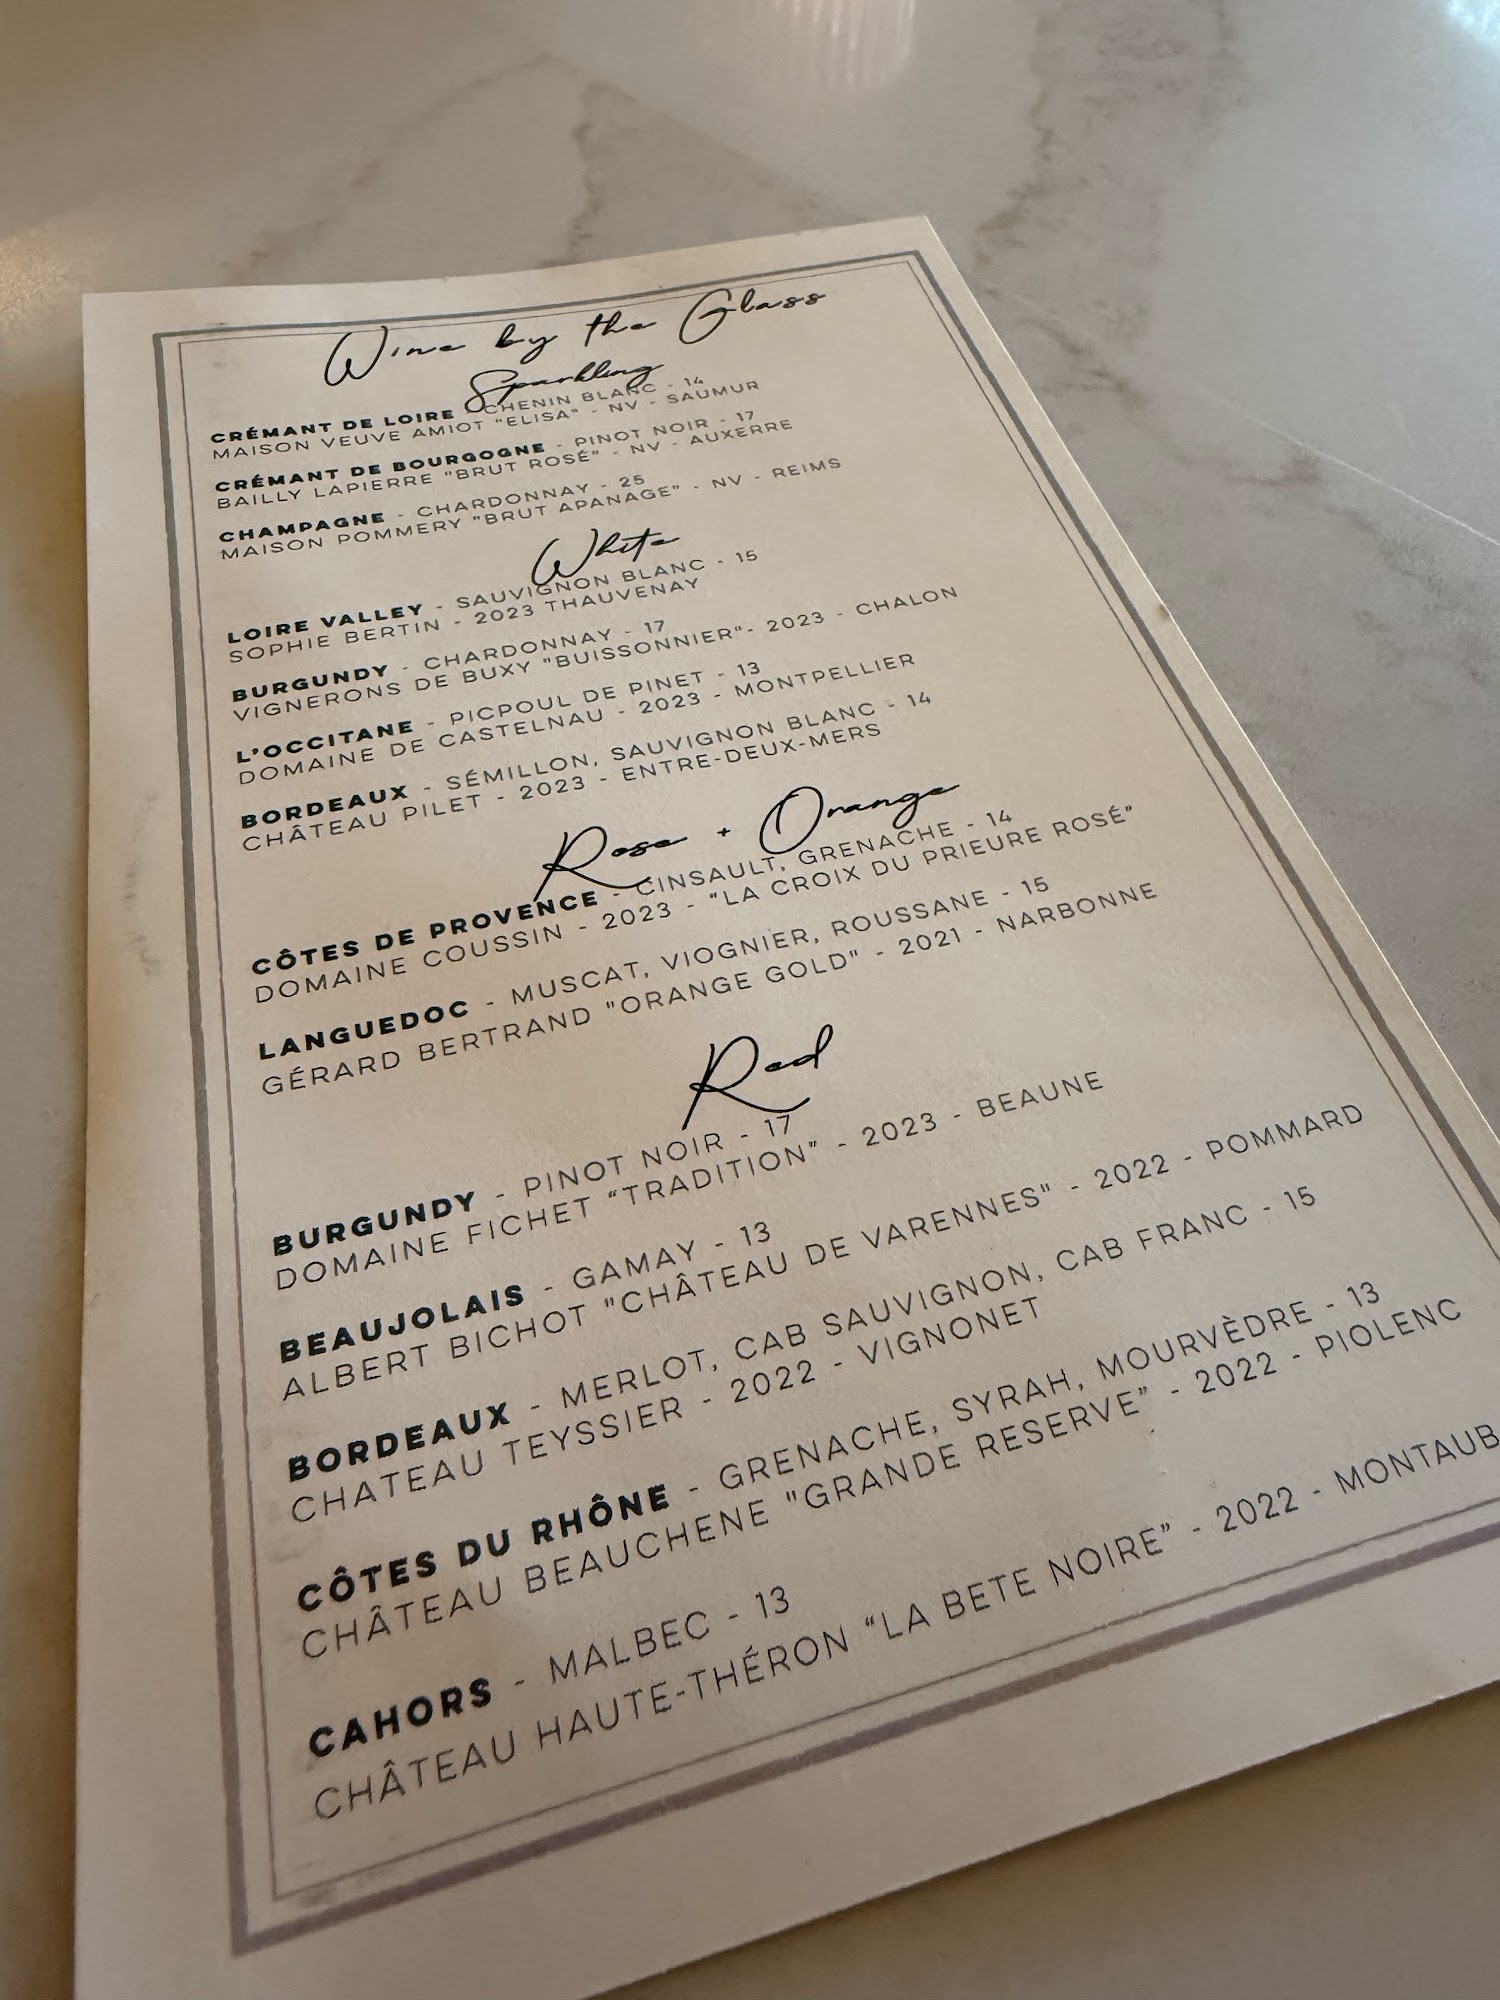 Wine by the Glass
Sparkling
CRÉMANT DE LOIRE - CHENIN BLANC - 14
MAISON VEUVE AMIOT "ELISA" - NV - SAUMUR
CRÉMANT DE BOURGOGNE - PINOT NOIR - 17
BAILLY LAPIERRE "BRUT ROSÉ" - NV - AUXERRE
CHAMPAGNE - CHARDONNAY - 25
MAISON POMMERY "BRUT APANAGE" - NV - REIMS
White
LOIRE VALLEY - SAUVIGNON BLANC - 15
SOPHIE BERTIN - 2023 THAUVENAY
BURGUNDY - CHARDONNAY - 17
VIGNERONS DE BUXY "BUISSONNIER"- 2023 - CHALON
L'OCCITANE - PICPOUL DE PINET - 13
DOMAINE DE CASTELNAU - 2023 - MONTPELLIER
BORDEAUX - SÉMILLON, SAUVIGNON BLANC - 14
CHÂTEAU PILET - 2023 - ENTRE-DEUX-MERS
Rose + Orange
CÔTES DE PROVENCE - CINSAULT, GRENACHE - 14
DOMAINE COUSSIN - 2023 - "LA CROIX DU PRIEURE ROSÉ"
LANGUEDOC - MUSCAT, VIOGNIER, ROUSSANE - 15
GÉRARD BERTRAND "ORANGE GOLD" - 2021 - NARBONNE
Red
BURGUNDY - PINOT NOIR - 17
DOMAINE FICHET "TRADITION" - 2023 - BEAUNE
BEAUJOLAIS - GAMAY - 13
ALBERT BICHOT "CHÂTEAU DE VARENNES" - 2022 - POMMARD
BORDEAUX - MERLOT, CAB SAUVIGNON, CAB FRANC - 15
CHATEAU TEYSSIER - 2022 - VIGNONET
CÔTES DU RHÔNE - GRENACHE, SYRAH, MOURVÈDRE - 13
CHÂTEAU BEAUCHENE "GRANDE RESERVE" - 2022 - PIOLENC
CAHORS - MALBEC - 13
CHÂTEAU HAUTE-THÉRON "LA BETE NOIRE" - 2022 - MONTAUB